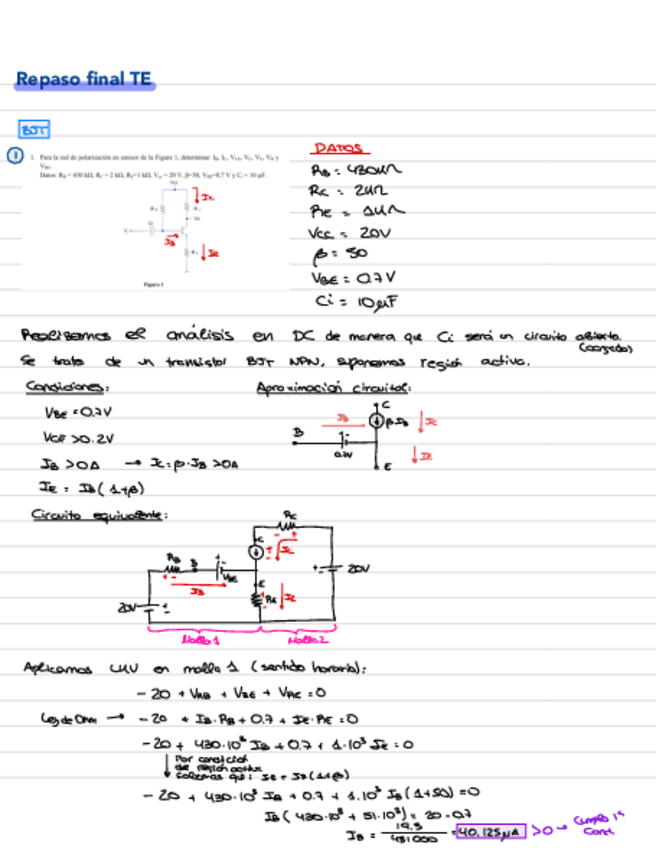 Repaso final TE
BJT
1
1. Para la red de polarización en emisor de la Figura 1, determinar: IB, IC, VCE, VC, VE, VB y
VBC.
Datos: RB = 430 kΩ, RC = 2 kΩ, RE=1 kΩ, VCC = 20 V, β=50, VBE=0,7 V y Ci = 10 µF.
IC
IB
IE
Figura 1
DATOS
RB = 430kΩ
RC = 2kΩ
RE = 1kΩ
VCC = 20V
β = 50
VBE = 0.7V
Ci = 10µF
Realizamos el análisis en DC de manera que Ci será un circuito abierto.
(cargado)
Se trata de un transistor BJT NPN, suponemos región activa.
Condiciones:
VBE = 0.7V
VCE > 0.2V
IB > 0A → IC = β·IB > 0A
IE = IB(1+β)
Aproximación circuital:
C
IB
β·IB
IC
B
0.7V
IE
E
Circuito equivalente:
RC
C
IC
RB
B
VBE
IB
E
RE
IE
20V
20V
Malla 1
Malla 2
Aplicamos LKV en malla 1 (sentido horario):
-20 + VRB + VBE + VRE = 0
Ley de Ohm → -20 + IB·RB + 0.7 + IE·RE = 0
-20 + 430·10³ IB + 0.7 + 1·10³ IE = 0
Por condición
de región activa
sabemos que: IE = IB(1+β)
-20 + 430·10³ IB + 0.7 + 1·10³ IB (1+50) = 0
IB (430·10³ + 51·10³) = 20-0.7
IB = 19,3 / 481000 = 40,125µA > 0 → Cumple 1ª
Cond.